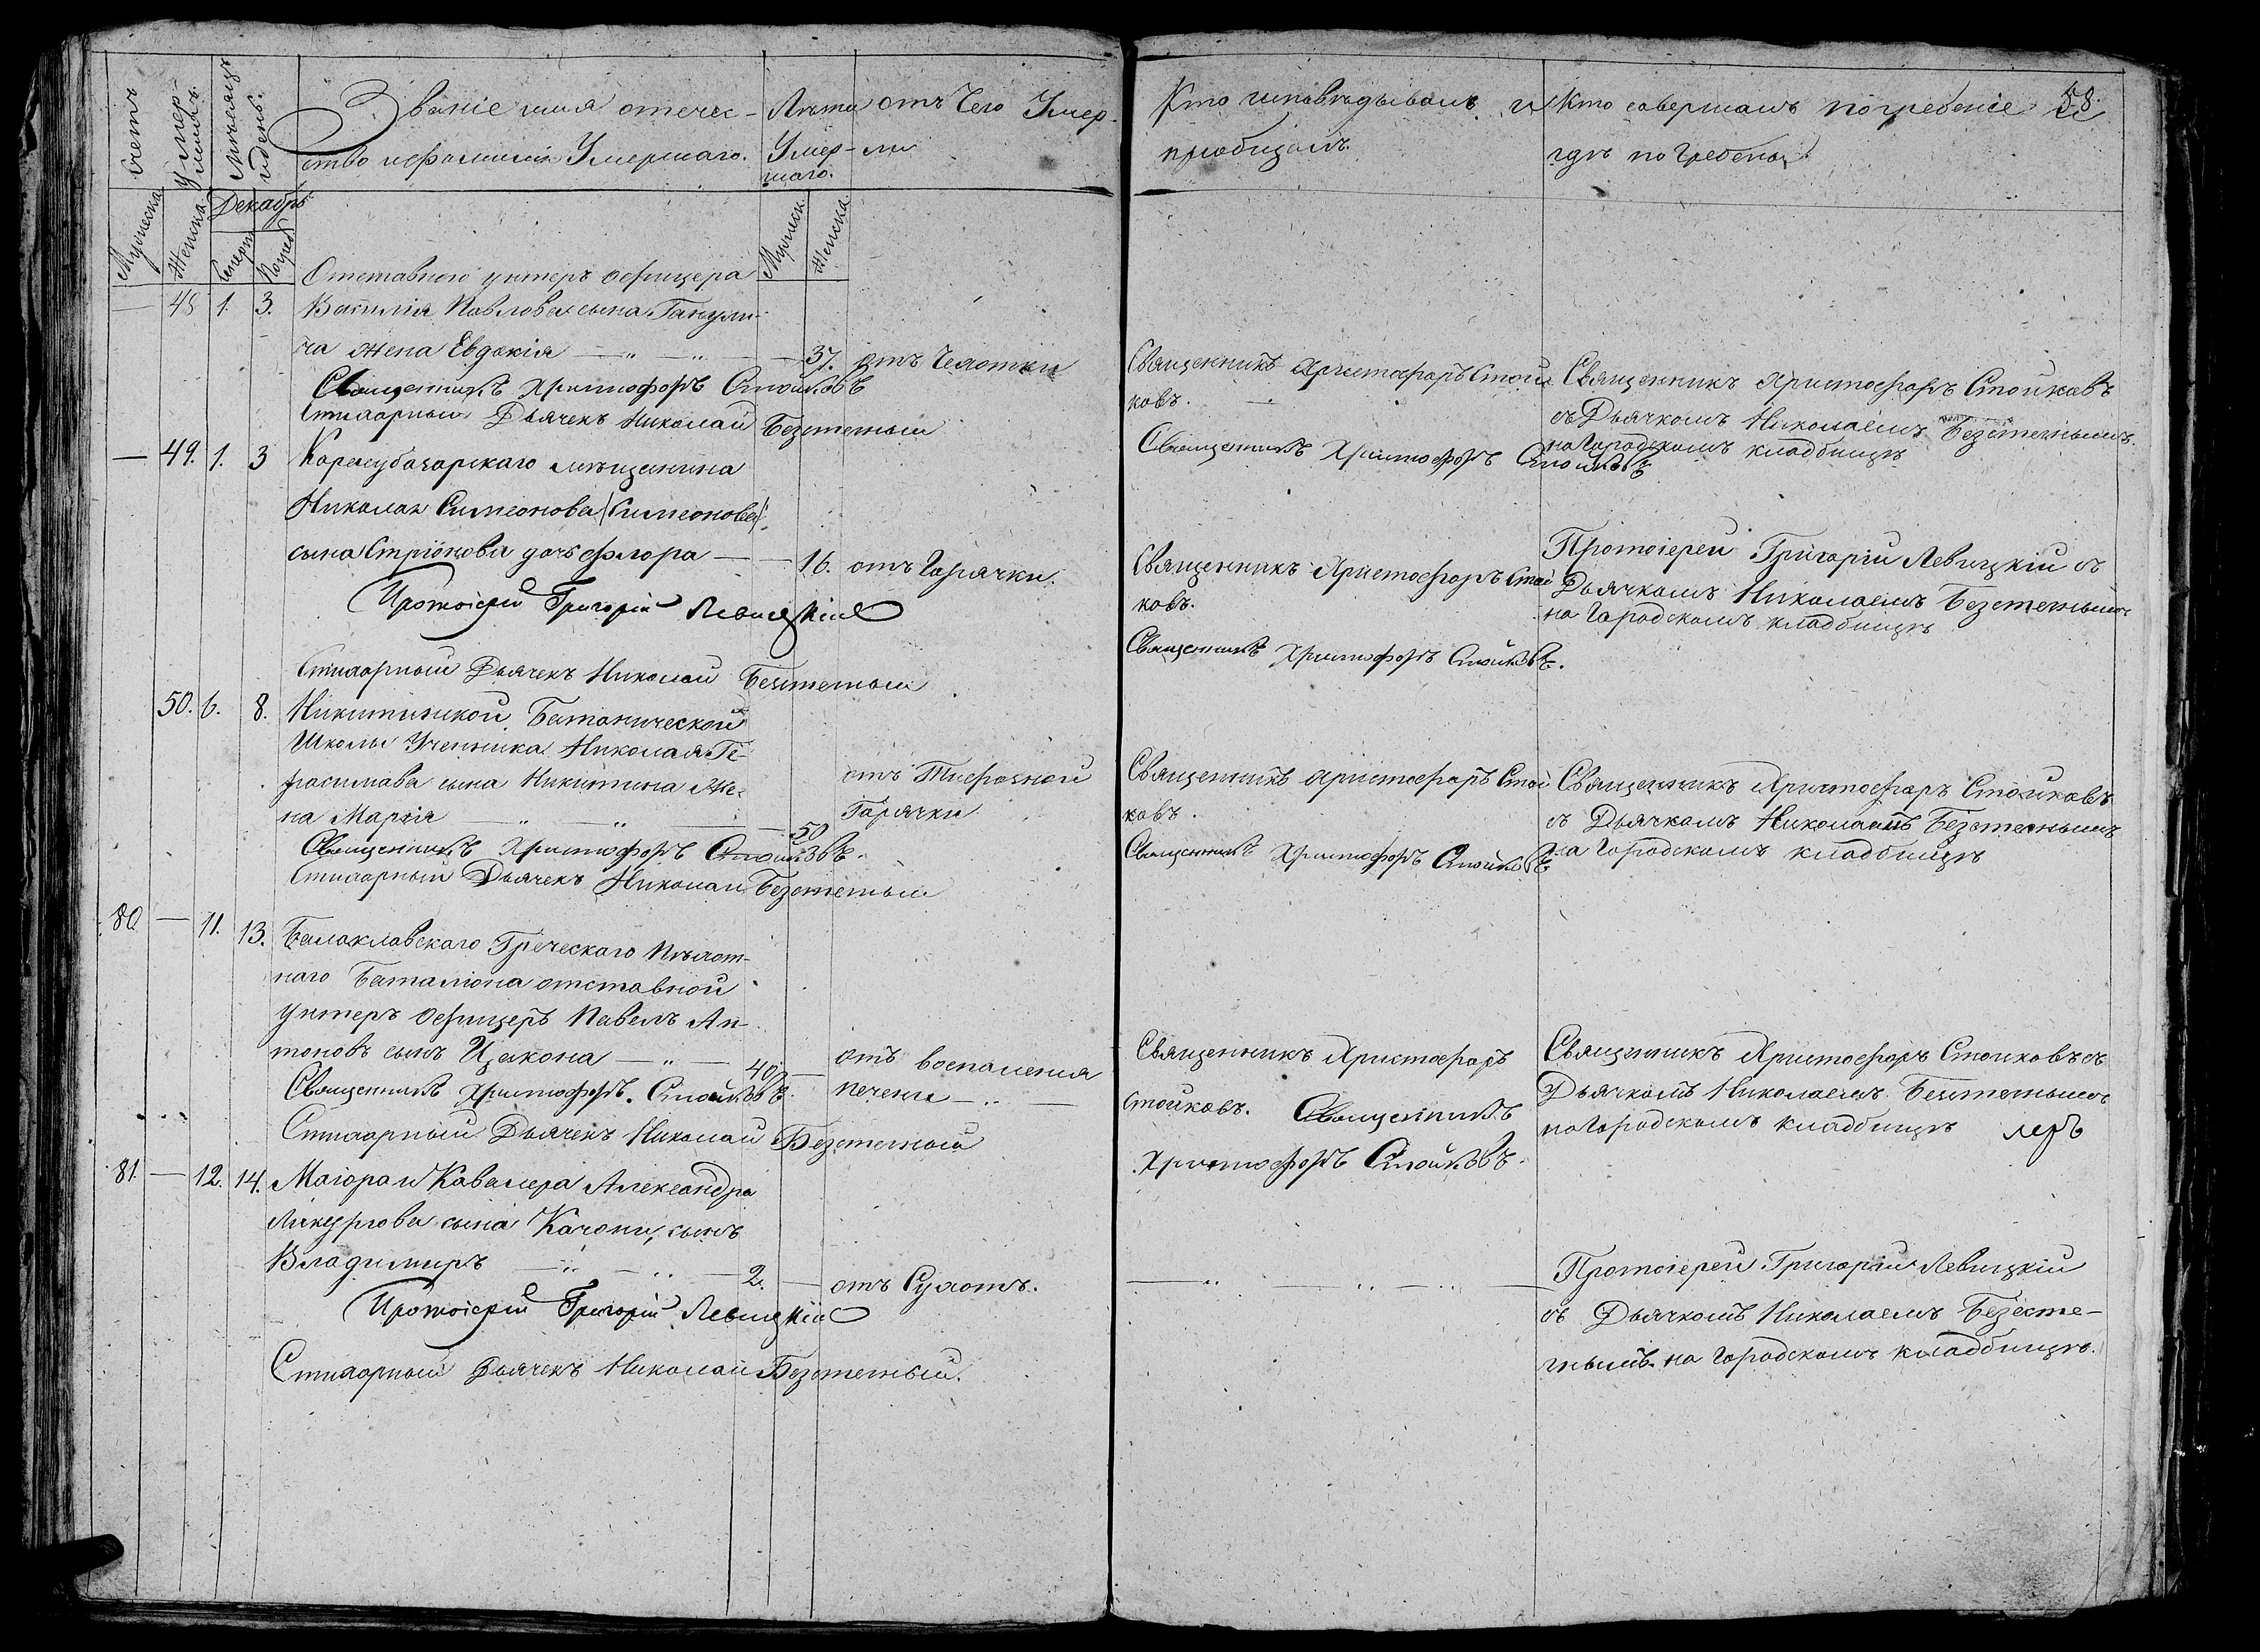 Счетъ умершихъ
Мѣсяцъ и день.
Званіе имя отечес-
ство и фамилія Умершаго.
Лѣта Умер-
шаго.
отъ Чего Умер-
ли
Мужеска
Женска
Декабрь
Смерт
Погреб
Мужеск
Женска
— 48 1. 3. Отставного унтеръ офицера
Василія Павлова сына
жена Евдокія — „ — „ — 37. отъ Чехотки
Священникъ Христофоръ Стойковъ
Стихарный Дьячекъ Николай Безстетный
— 49. 1. 3 Карасубазарскаго мѣщанина
Николая Симеонова (Симеонова)
сына дочь Флора — — 16. отъ Горячки.
Протоіерей Григорій Левицкій
Стихарный Дьячекъ Николай
50. 6. 8. Никитинской Батанической
Школы Ученика Николая Ге-
расимова сына Никитина Же-
на Марія — „ — „ — 50 отъ Тифозной
Горячки
Священникъ Христофоръ Стойковъ.
Стихарный Дьячекъ Николай
80 — 11. 13. Балаклавскаго Греческаго Пѣхот-
наго Баталіона отставной
Унтеръ офицеръ Павелъ Ан-
тоновъ сынъ Цакона — „ — 40 — отъ воспаленія
печени — „ —
Священникъ Христофоръ Стойковъ.
Стихарный Дьячекъ Николай
81. — 12. 14. Маіора и Кавалера Александра
Ликургова сына Качони, сынъ
Владимиръ — „ — „ — 2. — отъ Сухотъ.
Протоіерей Григорій Левицкій
Стихарный Дьячекъ Николай
Кто исповѣдывалъ и
пріобщалъ.
Кто совершалъ погребеніе и
гдѣ погребены.
58.
Священникъ Христофоръ Стой
ковъ.
Священникъ Христофоръ Стойковъ
Священникъ Христофоръ Стойковъ
съ Дьячкомъ Николаемъ
на Городскомъ кладбищѣ
Священникъ Христофоръ Стой
ковъ.
Священникъ Христофоръ Стойковъ.
Протоіерей Григорій Левицкій съ
Дьячкомъ Николаемъ
на Городскомъ кладбищѣ
Священникъ Христофоръ Стой
ковъ.
Священникъ Христофоръ Стойковъ
Священникъ Христофоръ Стойковъ
съ Дьячкомъ Николаемъ
на Городскомъ кладбищѣ
Священникъ Христофоръ
Стойковъ. Священникъ
Христофоръ Стойковъ.
Священникъ Христофоръ Стойковъ съ
Дьячкомъ Николаемъ
на Городскомъ кладбищѣ
— „ — „ — „ —
Протоіерей Григорій Левицкій
съ Дьячкомъ Николаемъ
на Городскомъ кладбищѣ.